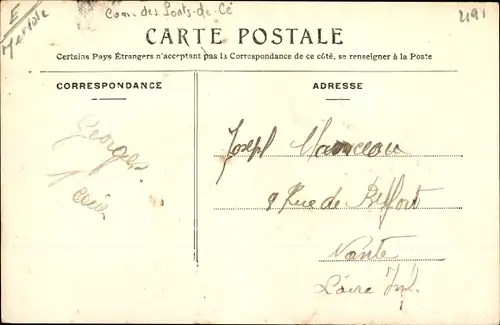 E
Com. des Ponts-de-Cé
2191
CARTE POSTALE
Certains Pays Étrangers n'acceptant pas la Correspondance de ce côté, se renseigner à la Poste
CORRESPONDANCE
ADRESSE
Georges
Joseph
8 Rue de Belfort
Nante
Loire Inf.